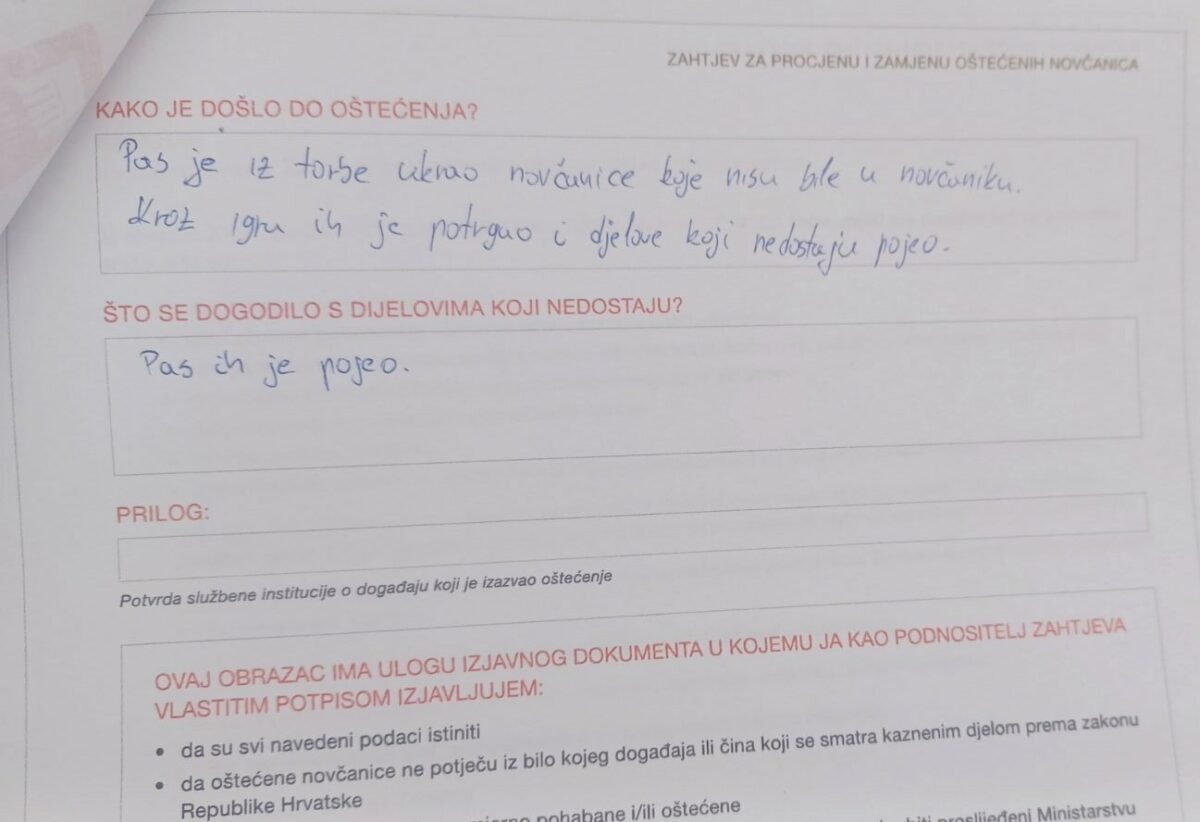 ZAHTJEV ZA PROCJENU I ZAMJENU OŠTEĆENIH NOVČANICA
KAKO JE DOŠLO DO OŠTEĆENJA?
Pas je iz torbe ukrao novčanice koje nisu bile u novčaniku.
Kroz igru ih je potrgao i djelove koji nedostaju pojeo.
ŠTO SE DOGODILO S DIJELOVIMA KOJI NEDOSTAJU?
Pas ih je pojeo.
PRILOG:
Potvrda službene institucije o događaju koji je izazvao oštećenje
OVAJ OBRAZAC IMA ULOGU IZJAVNOG DOKUMENTA U KOJEMU JA KAO PODNOSITELJ ZAHTJEVA
VLASTITIM POTPISOM IZJAVLJUJEM:
• da su svi navedeni podaci istiniti
• da oštećene novčanice ne potječu iz bilo kojeg događaja ili čina koji se smatra kaznenim djelom prema zakonu
Republike Hrvatske
pohabane i/ili oštećene
biti proslijeđeni Ministarstvu